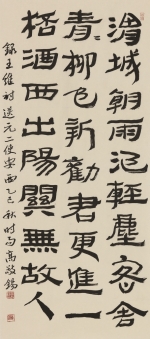 渭城朝雨浥輕塵客舍
青〻柳色新勸君更進一
桮酒西出陽關無故人
錄王維詩送元二使安西乙巳秋時